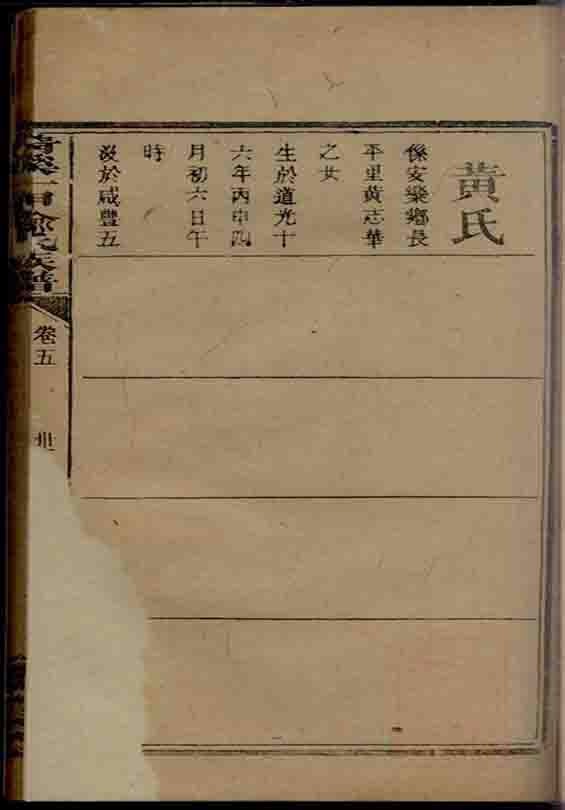 黃氏
係安樂鄉長
平里黃志華
之女
生於道光十
六年丙申四
月初六日午
時
歿於咸豐五
俞氏族譜
卷五
世